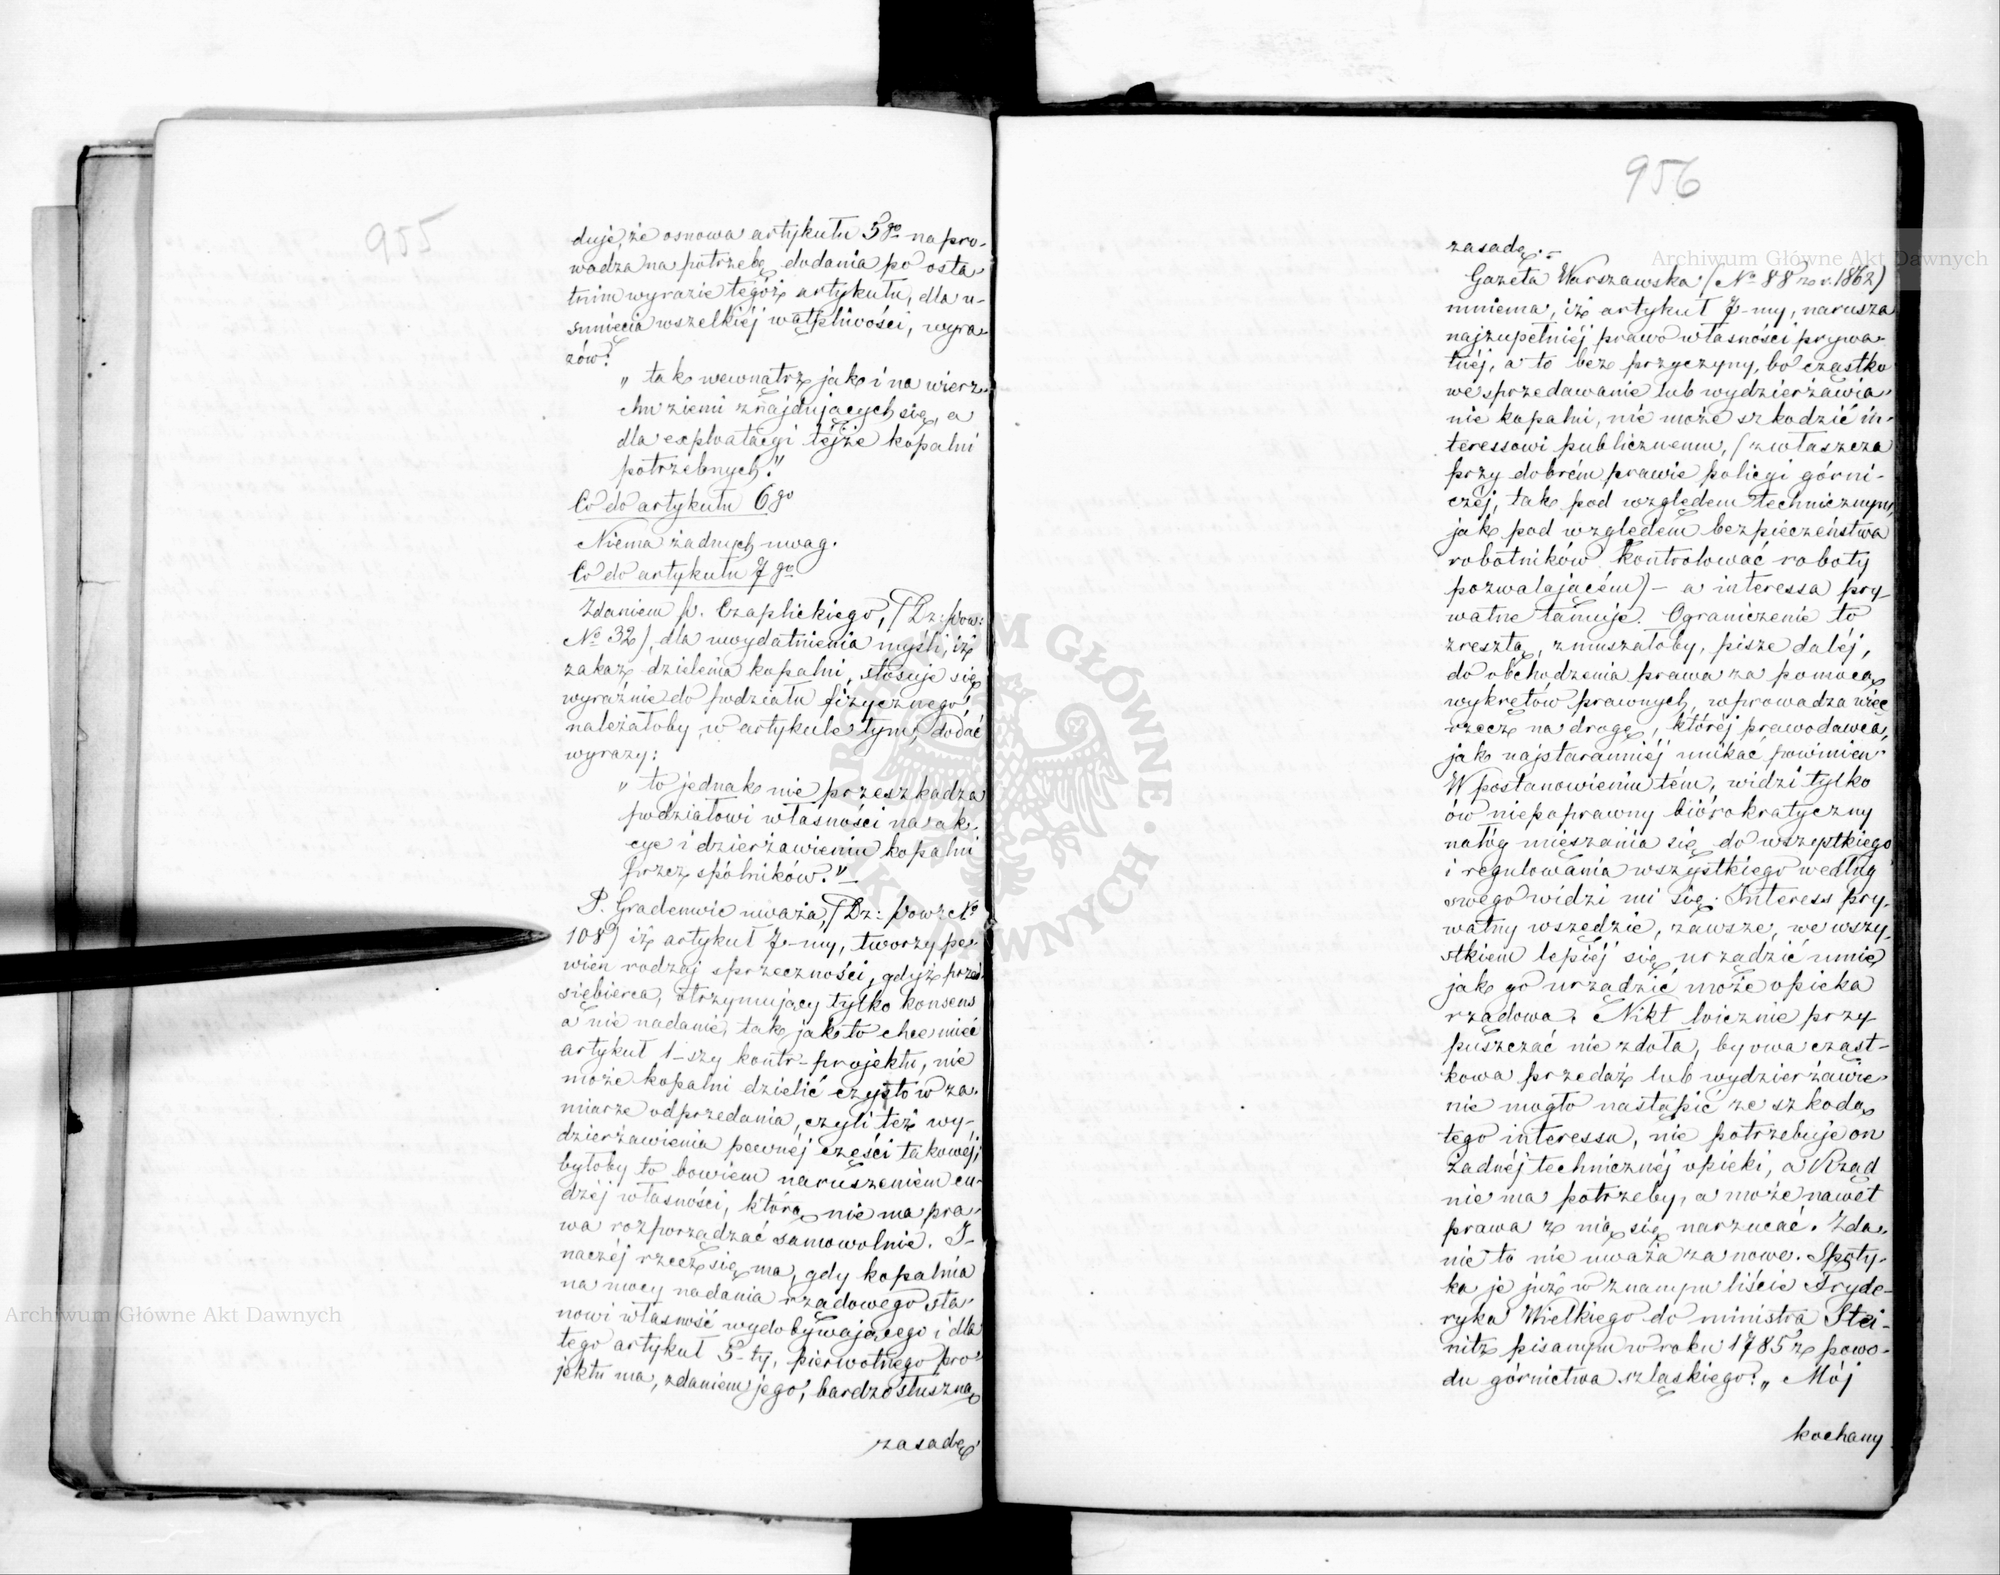 955
duje, że osnowa artykułu 5go napro-
wadza na potrzebę dodania po osta-
tnim wyrazie tegóż artykułu, dla u-
sunięcia wszelkiéj wątpliwości, wyra-
zów:
„tak wewnątrz jak i na wierz-
chu ziemi znajdujących się, a
dla exploatacyi téjże kopalni
potrzebnych."
Co do artykułu 6go
Niema żadnych uwag.
Co do artykułu 7go
Zdaniem p. Czaplickiego, (Dz: pow:
No 32), dla uwydatnienia myśli, iż
zakaz dzielenia kopalni, stosuje się
wyraźnie do podziału fizycznego,
należałoby w artykule tym, dodać
wyrazy:
„to jednak nie przeszkadza
podziałowi własności na ak-
cye i dzierżawieniu kopalni
przez spólników."
P. Gradenwic uważa, (Dz: pow: No
108) iż artykuł 7-my, tworzy pe-
wien rodzaj sprzeczności, gdyż przed-
siębierca, otrzymujący tylko konsens
a nie nadanie, tak jak to chce mieć
artykuł 1-szy kontr-projektu, nie
może kopalni dzielić czy to w za-
miarze odprzedania, czyli też wy-
dzierżawienia pewnéj części takowéj,
byłoby to bowiem naruszeniem cu-
dzéj własności, którą nie ma pra-
wa rozporządzać samowolnie. I-
naczéj rzecz się ma, gdy kopalnia
na mocy nadania rządowego sta-
nowi własność wydobywającego i dla
tego artykuł 5-ty, pierwotnego pro-
jektu ma, zdaniem jego, bardzo słuszną
zasadę
956
zasadę.-
Gazeta Warszawska (No 88 z r. 1862)
mniema, iż artykuł 7-my, narusza
najzupełniéj prawo własności prywa-
tnéj, a to bez przyczyny, bo cząstko
we sprzedawanie lub wydzierżawia-
nie kopalni, nie może szkodzić in-
teressowi publicznemu, (zwłaszcza
przy dobrém prawie policyi górni-
czéj, tak pod względem technicznym,
jak pod względem bezpieczeństwa
robotników kontrolować roboty
pozwalającém) - a interessa pry-
watne tamuje. Ograniczenie to
zresztą, zmuszałoby, pisze daléj,
do obchodzenia prawa za pomocą
wykrętów prawnych, wprowadza więc
rzecz na drogę, któréj prawodawca,
jak najstaranniéj unikać powinien.
W postanowieniu tém, widzi tylko
ów niepoprawny biórokratyczny
nałóg mięszania się do wszystkiego
i regulowania wszystkiego według
swego widzi mi się. Interess pry-
watny wszędzie, zawsze, we wszy-
stkiem lepiéj się urządzić umie
jak go urządzić może opieka
rządowa. Nikt logicznie przy
puszczać nie zdoła, by owa cząst-
kowa przedaż lub wydzierżawie-
nie mogło nastąpić ze szkodą
tego interessu, nie potrzebuje on
żadnéj technicznéj opieki, a Rząd
nie ma potrzeby, a może nawet
prawa z nią się narzucać. Zda-
nie to nie uważa za nowe. Spoty-
ka je już w znanym liście Fryde-
ryka Wielkiego do ministra Stei-
nitz pisanym w roku 1785 z powo-
du górnictwa szląskiego: „Mój
kochany
Archiwum Główne Akt Dawnych
Archiwum Główne Akt Dawnych
ARCHIWUM GŁÓWNE AKT DAWNYCH